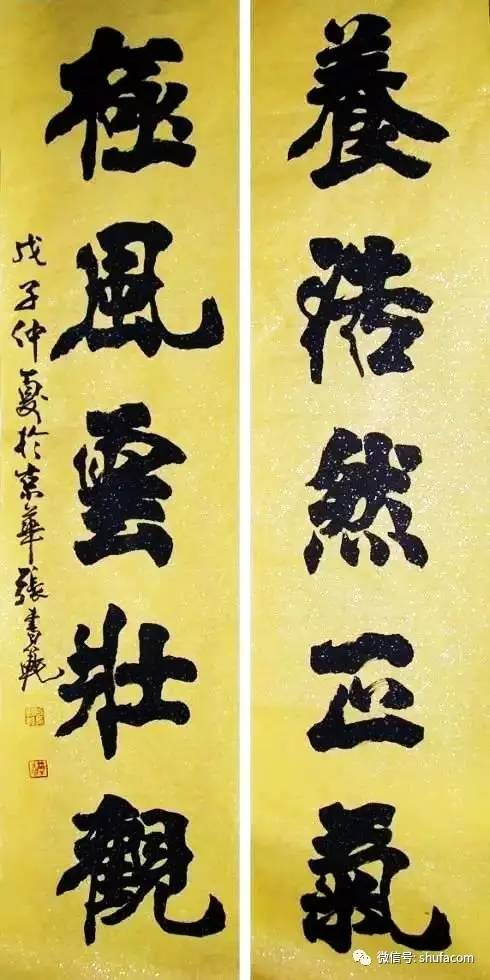 養浩然正氣
極風雲壯觀
戊子仲夏於京華張書範
微信号: shufacom